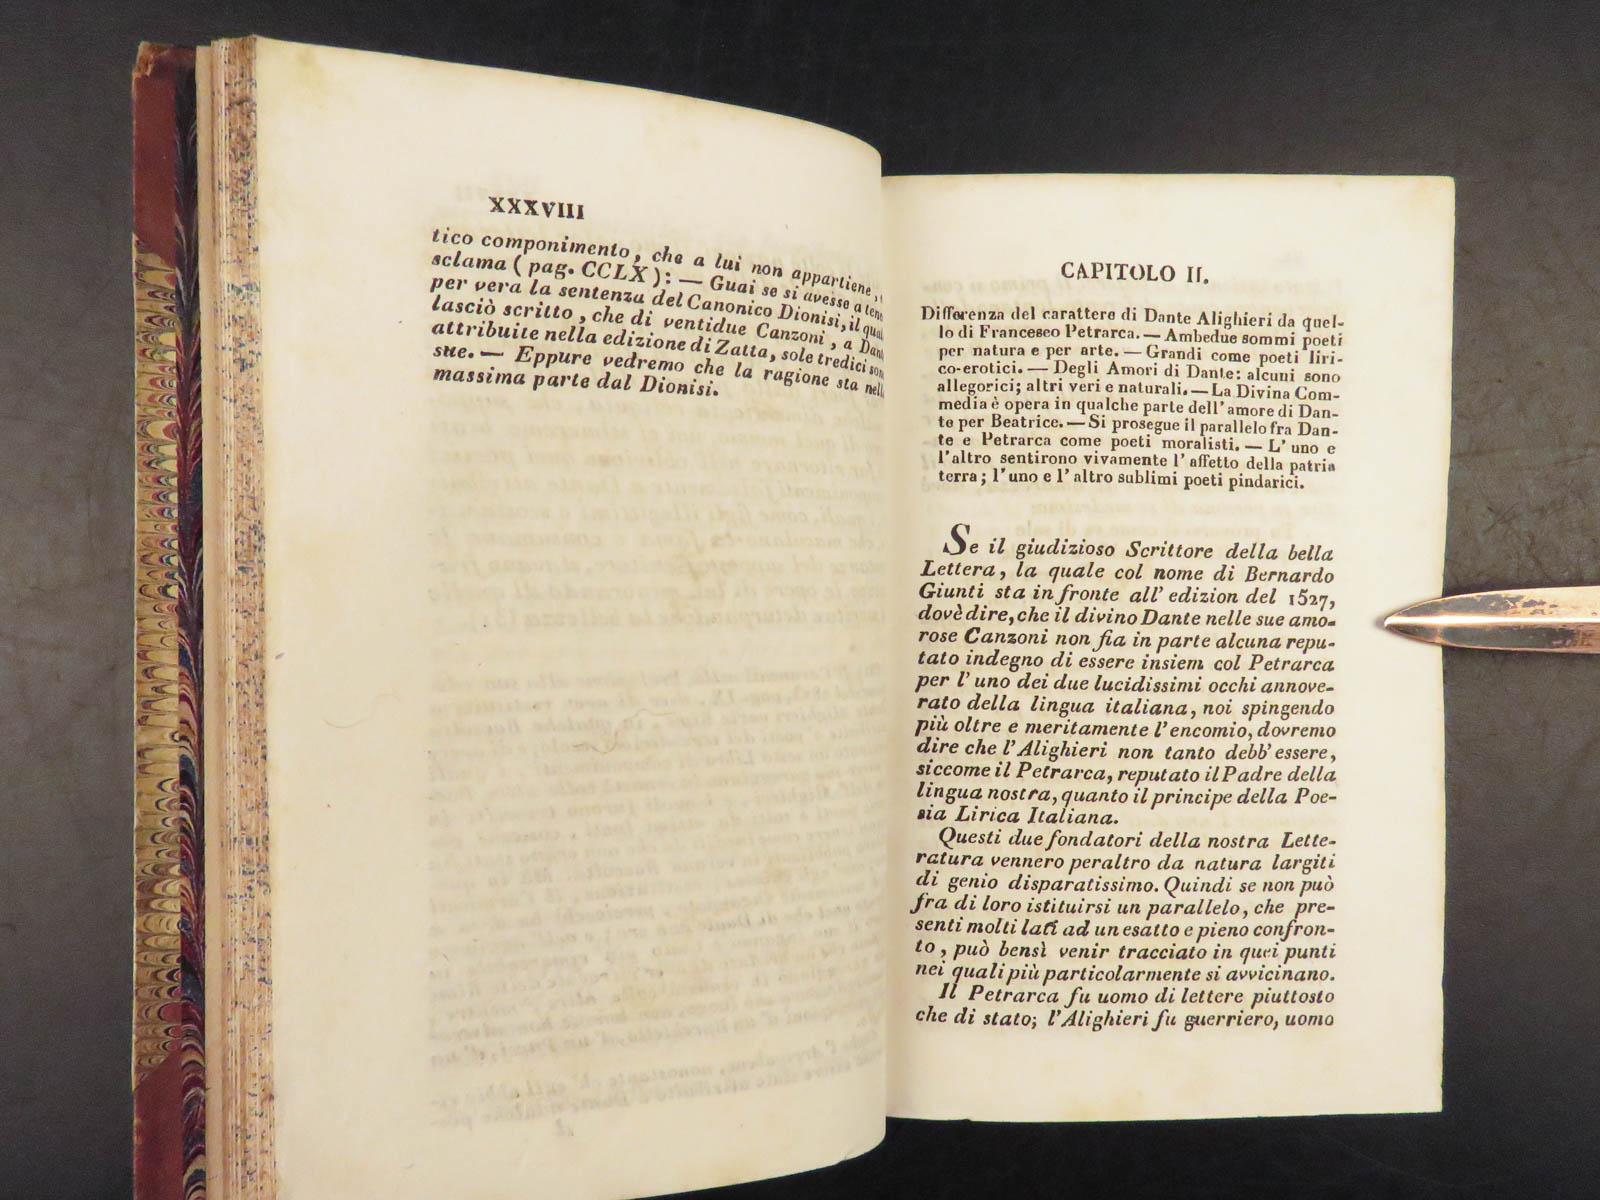 XXXVIII
tico componimento, che a lui non appartiene,
sclama (pag. CCLX): — Guai se si avesse a
per vera la sentenza del Canonico Dionisi, il
lasciò scritto, che di ventidue Canzoni, a
attribuite nella edizione di Zatta, sole tredici
sue. — Eppure vedremo che la ragione sta
massima parte dal Dionisi.
CAPITOLO II.
Differenza del carattere di Dante Alighieri da quel-
lo di Francesco Petrarca. — Ambedue sommi poeti
per natura e per arte. — Grandi come poeti liri-
co-erotici. — Degli Amori di Dante: alcuni sono
allegorici; altri veri e naturali. — La Divina Com-
media è opera in qualche parte dell' amore di Dan-
te per Beatrice. — Si prosegue il parallelo fra Dan-
te e Petrarca come poeti moralisti. — L' uno e
l'altro sentirono vivamente l' affetto della patria
terra; l' uno e l' altro sublimi poeti pindarici.
Se il giudizioso Scrittore della bella
Lettera, la quale col nome di Bernardo
Giunti sta in fronte all' edizion del 1527,
dovè dire, che il divino Dante nelle sue amo-
rose Canzoni non fia in parte alcuna repu-
tato indegno di essere insiem col Petrarca
per l' uno dei due lucidissimi occhi annove-
rato della lingua italiana, noi spingendo
più oltre e meritamente l' encomio, dovremo
dire che l'Alighieri non tanto debb' essere,
siccome il Petrarca, reputato il Padre della
lingua nostra, quanto il principe della Poe-
sia Lirica Italiana.
Questi due fondatori della nostra Lette-
ratura vennero peraltro da natura largiti
di genio disparatissimo. Quindi se non può
fra di loro istituirsi un parallelo, che pre-
senti molti lati ad un esatto e pieno confron-
to, può bensì venir tracciato in quei punti
nei quali più particolarmente si avvicinano.
Il Petrarca fu uomo di lettere piuttosto
che di stato; l'Alighieri fu guerriero, uomo